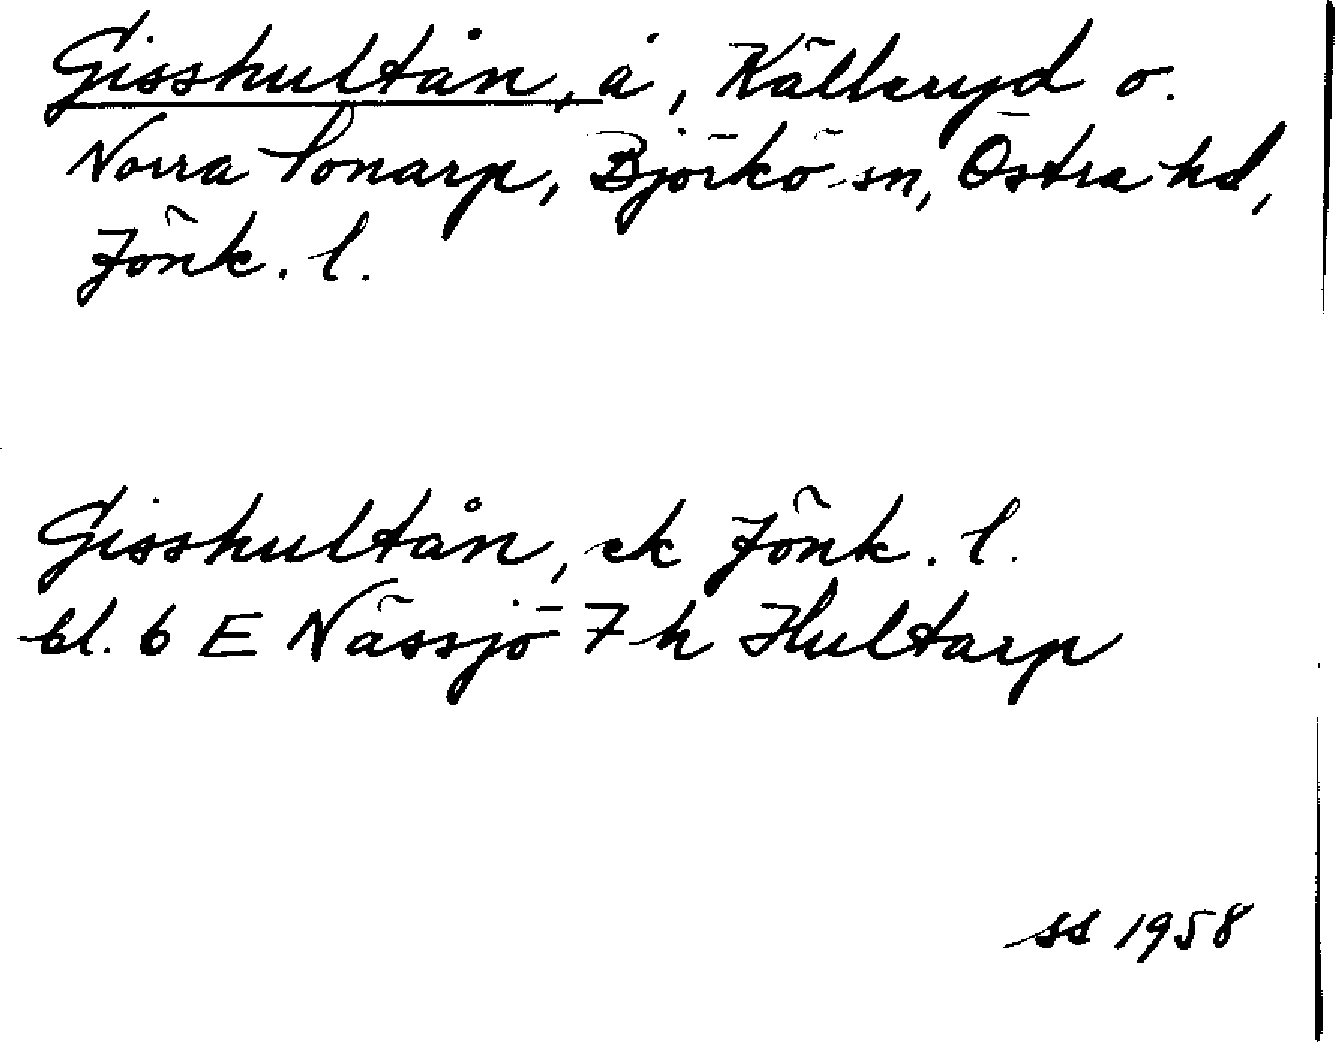 Gisshultån, å, Källeryd o.
Norra Sonarp, Björkö sn, Östra hd,
Jönk. l.
Gisshultån, ek Jönk. l.
bl. 6 E Nässjö 7 h Hultarp
SS 1958